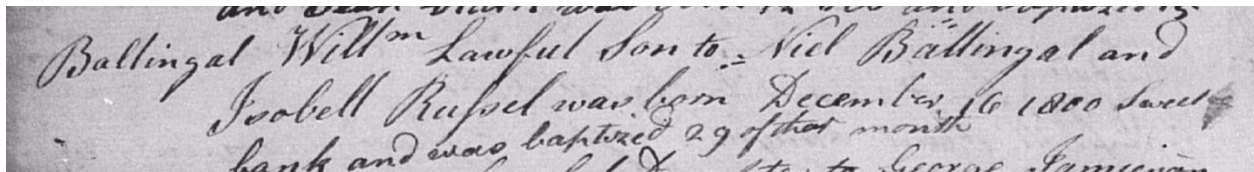 and
Ballingal Willm Lawful Son to Niel Ballingal and
Isobell Russel was born December 16 1800 Sweet
bank and was baptized 29 of that month
to George Jamieson